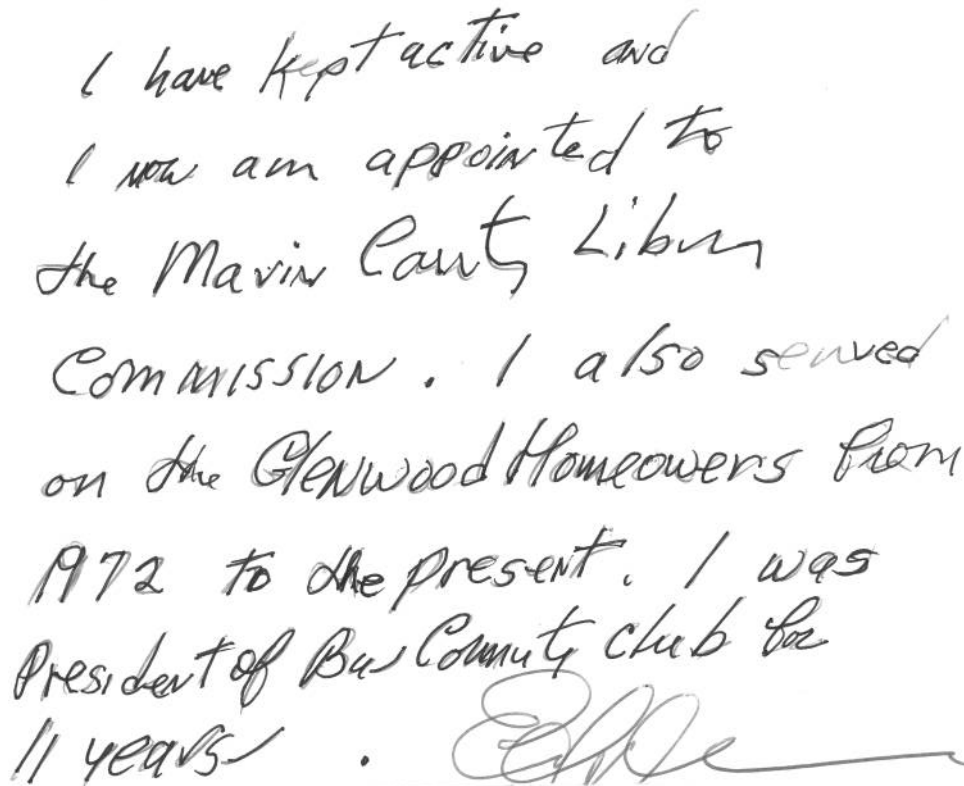 I have kept active and
I now am appointed to
the Marin County Library
Commission. I also served
on the Glenwood Homeowers from
1972 to the present. I was
President of Commuty club for
11 years.